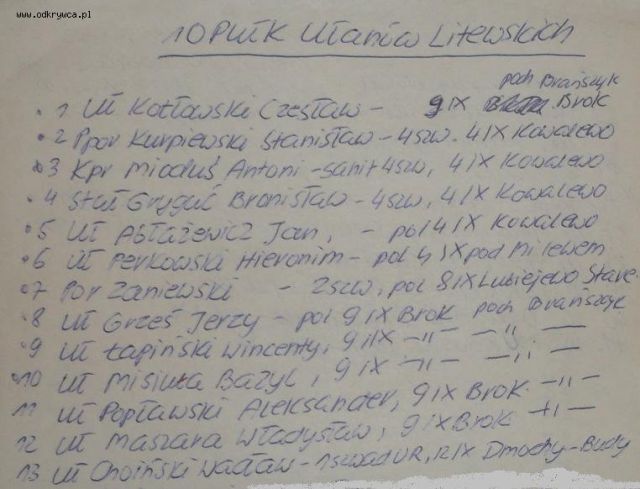 www.odkrywca.pl
10 PUŁK UŁANÓW LITEWSKICH
poch Brańszyk
1 Uł Kotłowski Czesław - 9 IX Brok
2 Ppor Kurpiewski Stanisław - 4 szw. 4 IX Kowalewo
3 Kpr Mioduś Antoni - sanit 4 szw, 4 IX Kowalewo
4 Stuł Gryguć Bronisław - 4 szw, 4 IX Kowalewo
5 Uł Abłażewicz Jan, - pol 4 IX Kowalewo
6 Uł Perkowski Hieronim - pol 4 IX pod Milewem
7 Por Zaniewski - 2 szw, pol 8 IX Lubiejewo Stare
8 Uł Grześ Jerzy - pol 9 IX Brok poch Brańszczyk
9 Uł Łapiński Wincenty, 9 IX -„- -„-
10 Uł Misiuka Bazyl, 9 IX -„- -„-
11 Uł Popławski Aleksander, 9 IX Brok -„-
12 Uł Maszara Władysław, 9 IX Brok -„-
13 Uł Choiński Wacław - 1 szwad UR, 12 IX Dmochy-Budy